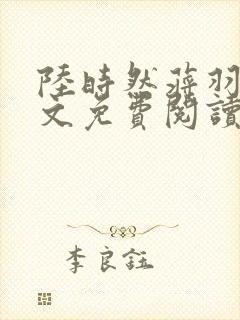 陸時然蔣羽
文免費閱讀
李良鈺